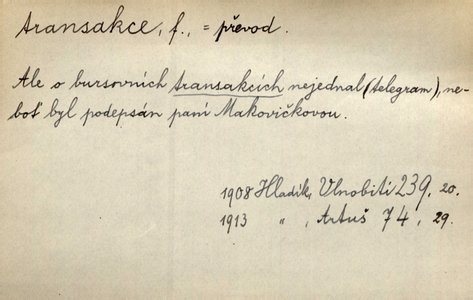 transakce, f., = převod.
Ale o bursovních transakcích nejednal (telegram), ne-
boť byl podepsán paní Makovičkovou.
1908 Hladík, Vlnobití 239, 20.
1913 „ , Artuš 74, 29.